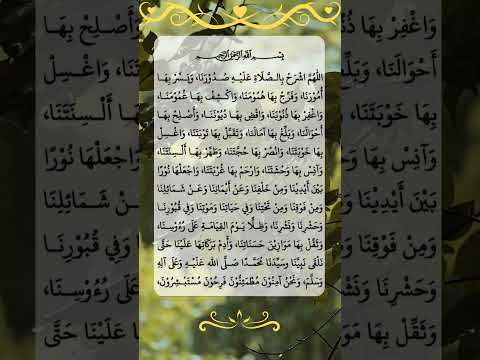 بِسْمِ اللهِ الرَّحْمٰنِ الرَّحِيْمِ
اللّٰهُمَّ اشْرَحْ بِالصَّلَاةِ عَلَيْهِ صُدُوْرَنَا، وَيَسِّرْ بِهَا
أُمُوْرَنَا، وَفَرِّجْ بِهَا هُمُوْمَنَا، وَاكْشِفْ بِهَا غُمُوْمَنَا،
وَاغْفِرْ بِهَا ذُنُوْبَنَا، وَاقْضِ بِهَا دُيُوْنَنَا، وَأَصْلِحْ بِهَا
أَحْوَالَنَا، وَبَلِّغْ بِهَا آمَالَنَا، وَتَقَبَّلْ بِهَا تَوْبَتَنَا، وَاغْسِلْ
بِهَا حَوْبَتَنَا، وَانْصُرْ بِهَا حُجَّتَنَا، وَطَهِّرْ بِهَا أَلْسِنَتَنَا،
وَآنِسْ بِهَا وَحْشَتَنَا، وَارْحَمْ بِهَا غُرْبَتَنَا، وَاجْعَلْهَا نُوْرًا
بَيْنَ أَيْدِيْنَا وَمِنْ خَلْفِنَا وَعَنْ أَيْمَانِنَا وَعَنْ شَمَائِلِنَا
وَمِنْ فَوْقِنَا وَمِنْ تَحْتِنَا وَفِي حَيَاتِنَا وَمَوْتِنَا وَفِي قُبُوْرِنَا
وَحَشْرِنَا وَنَشْرِنَا، وَظِلًّا يَوْمَ الْقِيَامَةِ عَلَى رُءُوْسِنَا،
وَثَقِّلْ بِهَا مَوَازِيْنَ حَسَنَاتِنَا، وَأَدِمْ بَرَكَاتِهَا عَلَيْنَا حَتَّى
نَلْقَى نَبِيَّنَا وَسَيِّدَنَا مُحَمَّدًا صَلَّى اللهُ عَلَيْهِ وَعَلَى آلِهِ
وَسَلَّمَ، وَنَحْنُ آمِنُوْنَ مُطْمَئِنُّوْنَ فَرِحُوْنَ مُسْتَبْشِرُوْنَ،